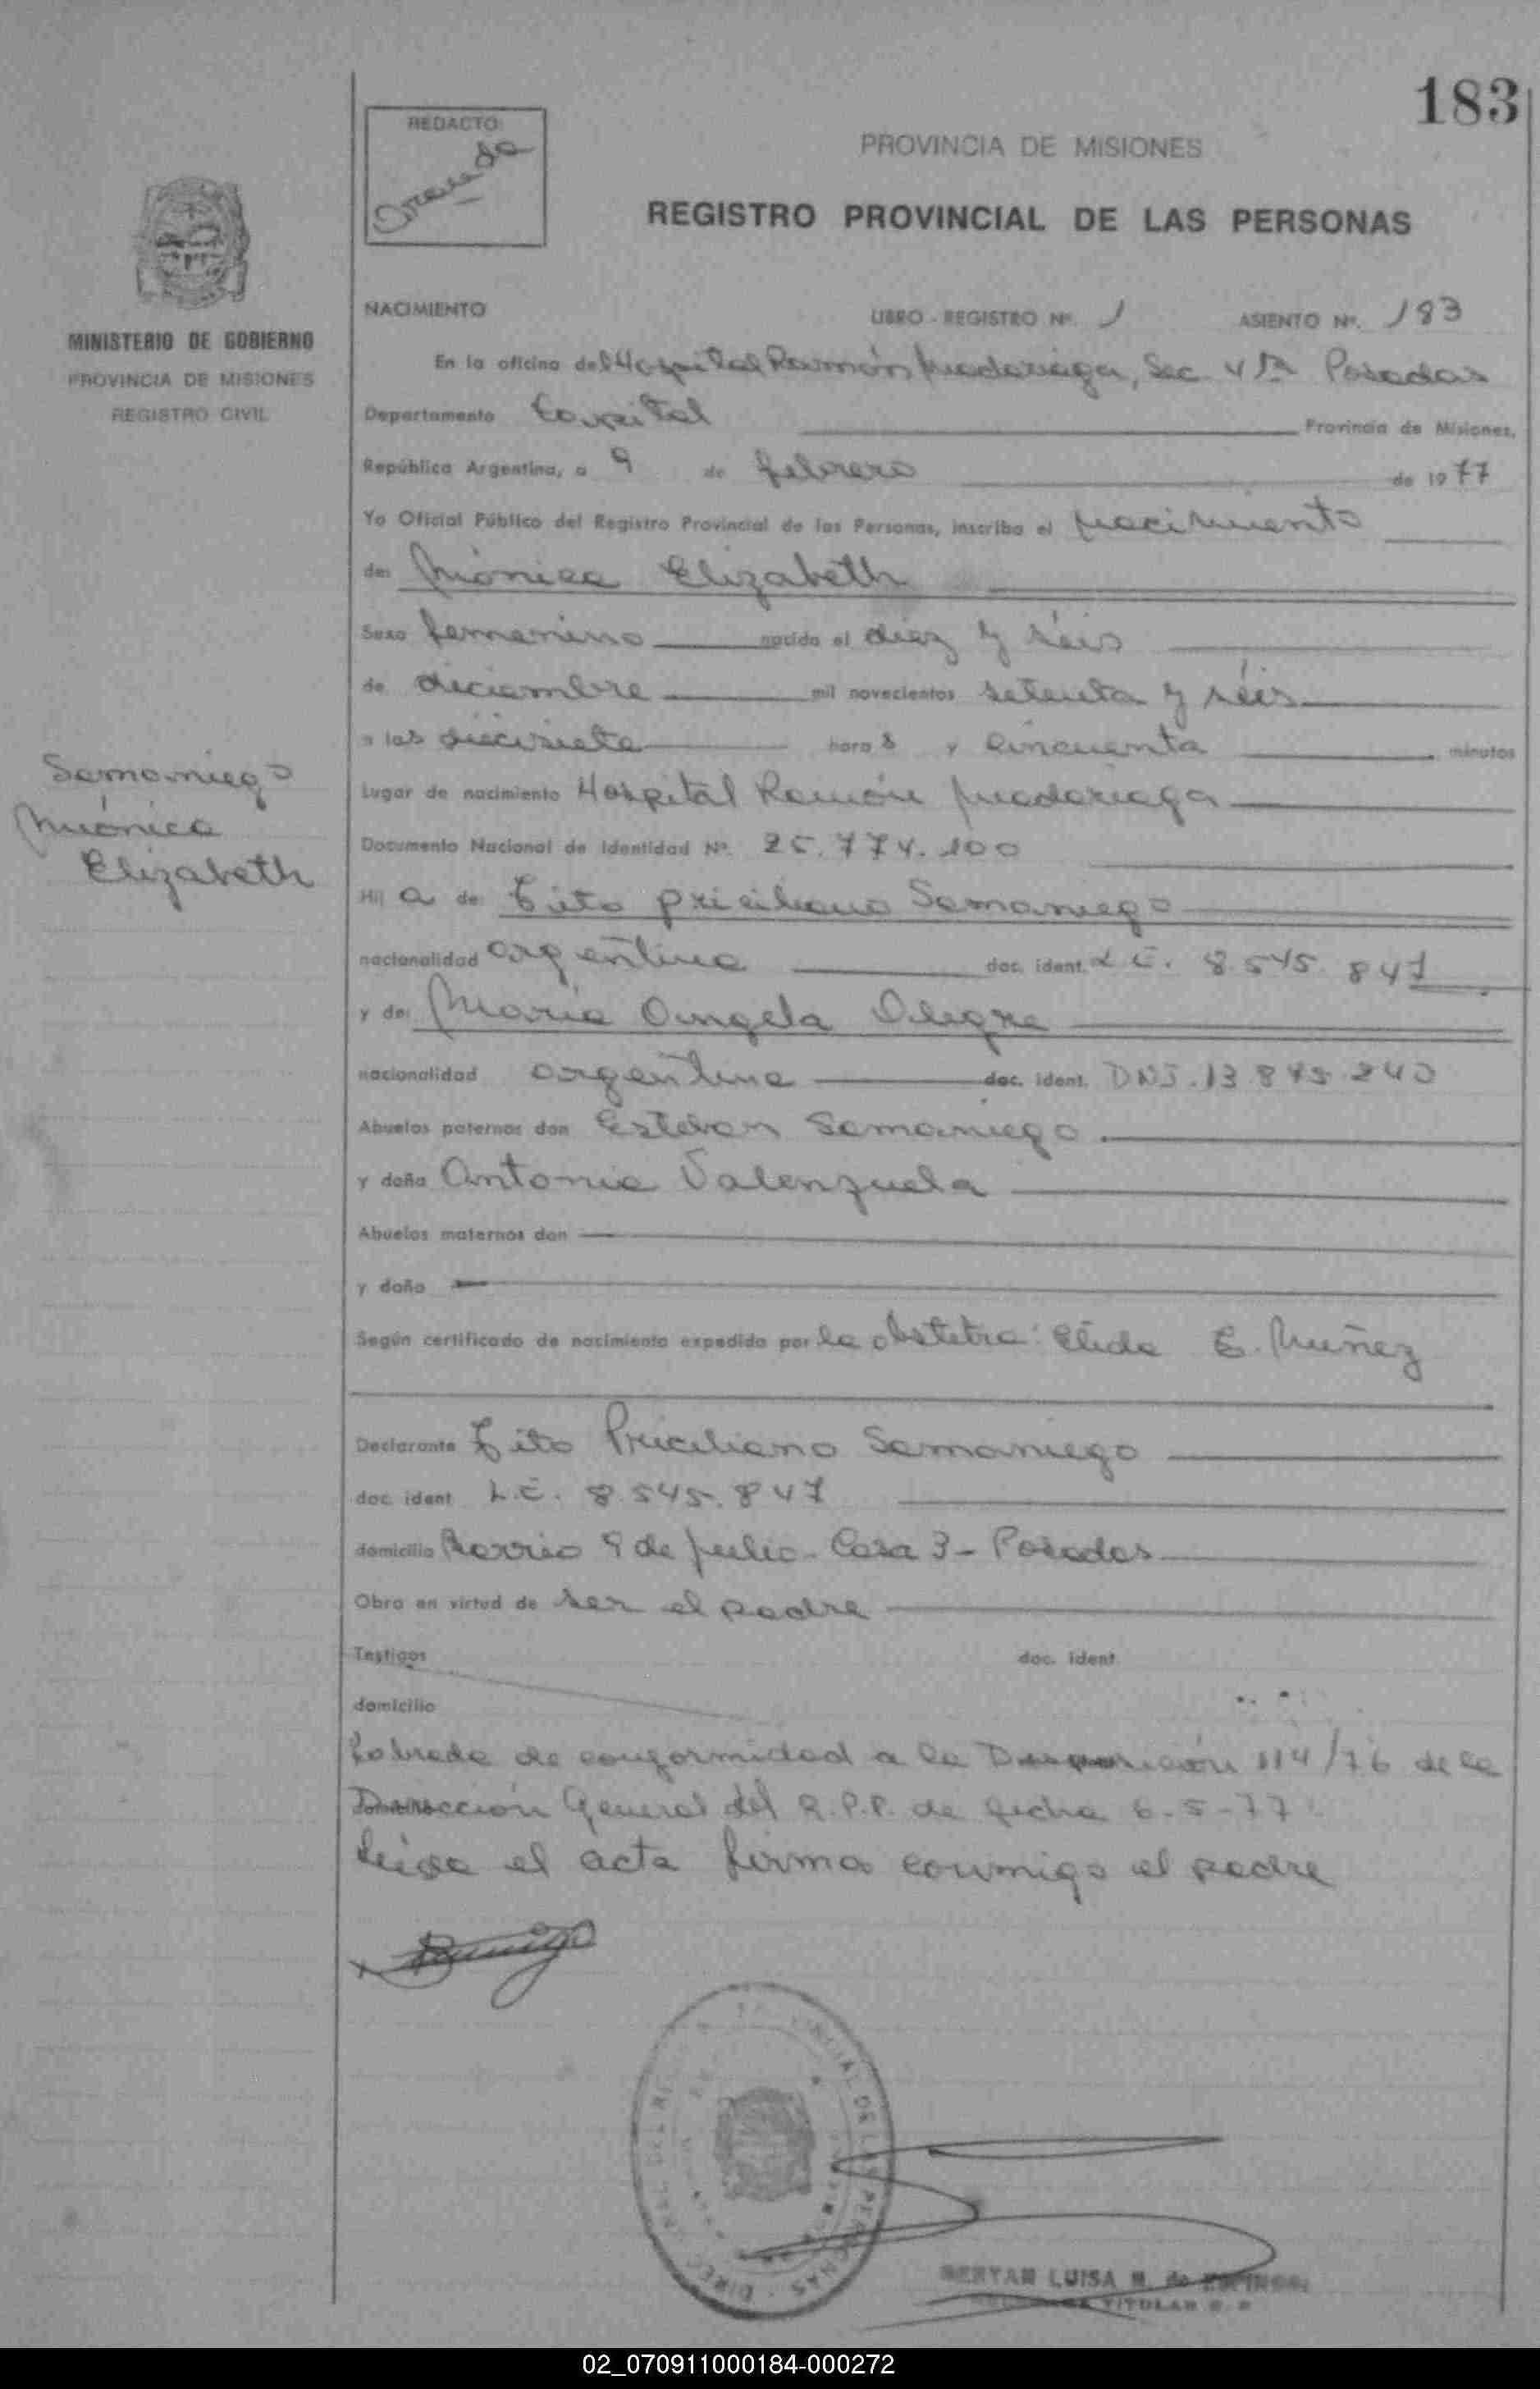 183
REDACTO
PROVINCIA DE MISIONES
REGISTRO PROVINCIAL DE LAS PERSONAS
MINISTERIO DE GOBIERNO
PROVINCIA DE MISIONES
REGISTRO CIVIL
NACIMIENTO LIBRO - REGISTRO Nº. 1 ASIENTO Nº. 183
En la oficina del Hospital Ramón Madariaga, Sec. Posadas
Departamento Capital Provincia de Misiones,
República Argentina, a 9 de febrero de 1977
Yo Oficial Público del Registro Provincial de las Personas, inscribo el nacimiento
de: Mónica Elizabeth
Sexo femenino nacido el diez y séis
de diciembre mil novecientos setenta y séis
a las diecisiete horas y cincuenta minutos
Samaniego
Mónica
Elizabeth
Lugar de nacimiento Hospital Ramón Madariaga
Documento Nacional de Identidad Nº. 25.774.100
Hija de: Tito Priciliano Samaniego
nacionalidad argentina doc. ident. L.E. 8.545.847
y de: María Angela Alegre
nacionalidad argentina doc. ident. DNI. 13.845.240
Abuelos paternos don Esteban Samaniego
y doña Antonia Valenzuela
Abuelos maternos don
y doña
Según certificado de nacimiento expedido por la obstetra: Elida E. Nuñez
Declarante Tito Priciliano Samaniego
doc. ident. L.E. 8.545.847
domicilio Barrio 9 de julio - Casa 3 - Posadas
Obra en virtud de ser el padre
Testigos doc. ident
domicilio
Labrada de conformidad a la Disposición 114/76 de la
Dirección General del R.P.P. de fecha 6-5-77
Leída el acta firma conmigo el padre
LUISA
TITULAR
02_070911000184-000272